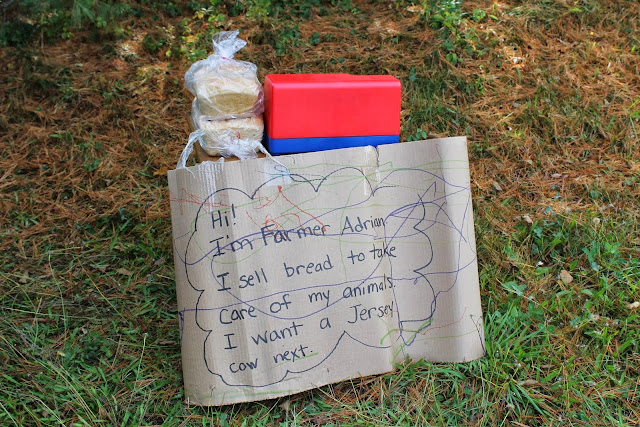 Hi!
I'm Farmer Adrian
I sell bread to take
care of my animals.
I want a Jersey
cow next.